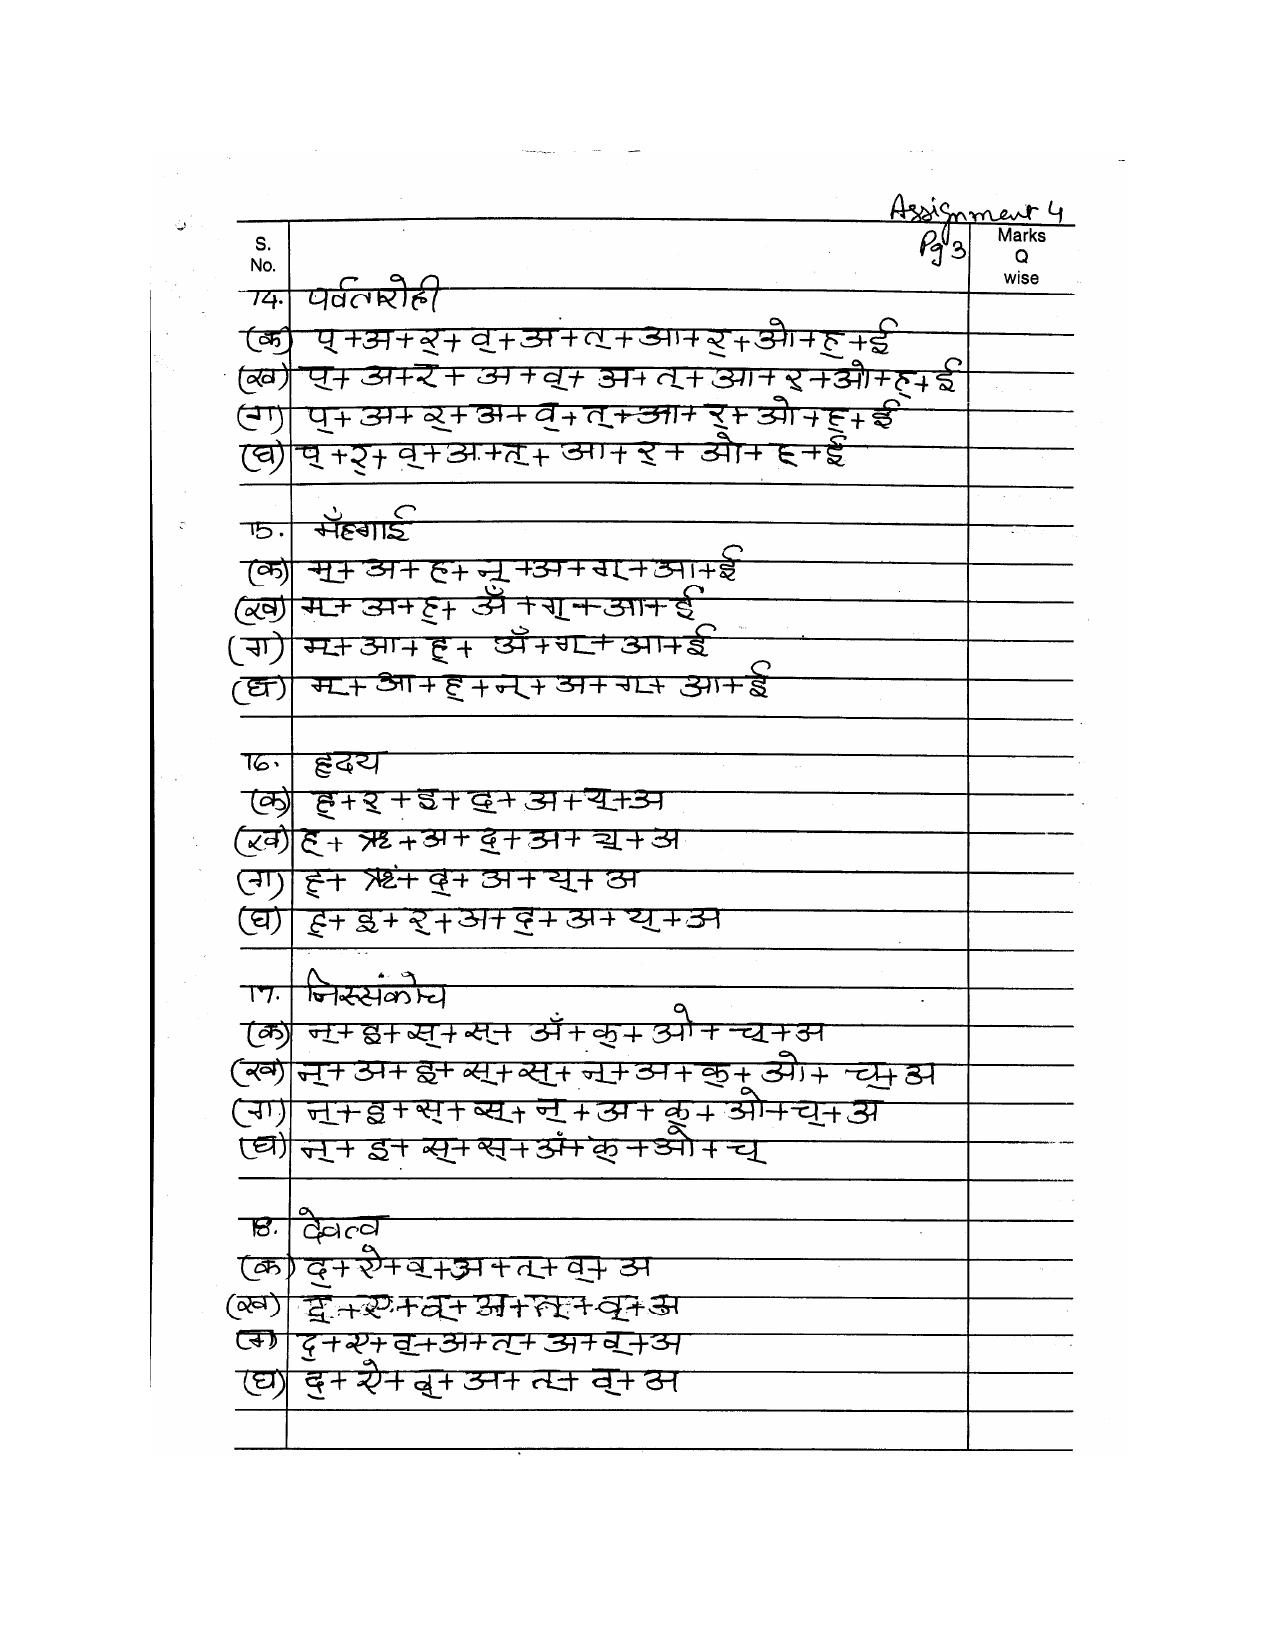 Assignment 4
Pg 3
S. No.
Marks Q wise
14. पर्वतारोही
(क) प्+अ+र्+व्+अ+त्+आ+र्+ओ+ह्+ई
(ख) प्+अ+र्+अ+व्+अ+त्+आ+र्+ओ+ह्+ई
(ग) प्+अ+र्+अ+व्+त्+आ+र्+ओ+ह्+ई
(घ) प्+र्+व्+अ+त्+आ+र्+ओ+ह्+ई
15. मँहगाई
(क) म्+अ+ह+न्+अ+ग्+आ+ई
(ख) म्+अ+ह्+अँ+ग्+आ+ई
(ग) म्+आ+ह्+अँ+ग्+आ+ई
(घ) म्+आ+ह्+न्+अ+ग्+आ+ई
16. हृदय
(क) ह्+र्+इ+द्+अ+य्+अ
(ख) ह्+ऋ+अ+द्+अ+य्+अ
(ग) ह्+ऋ+द्+अ+य्+अ
(घ) ह्+इ+र्+अ+द्+अ+य्+अ
17. निस्संकोच
(क) न्+इ+स्+स्+अँ+क्+ओ+च्+अ
(ख) न्+अ+इ+स्+स्+न्+अ+क्+ओ+च्+अ
(ग) न्+इ+स्+स्+न्+अ+क्+ओ+च्+अ
(घ) न्+इ+स्+स्+अं+क्+ओ+च्
18. देवत्व
(क) द्+ऐ+व्+अ+त्+व्+अ
(ख) द्+ए+व्+अ+त्+व्+अ
(ग) द्+ए+व्+अ+त्+अ+व्+अ
(घ) द्+ऐ+व्+अ+त्+व्+अ